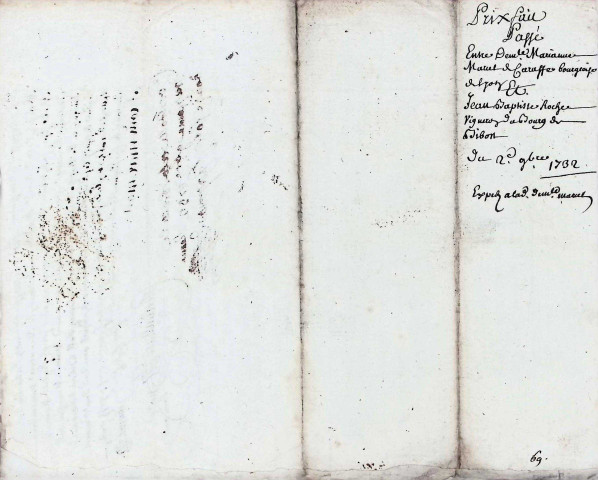 Prix fait
Passé
Entre Demle Marianne
Maret de Caraffe bourgeoise
de Lyon Et
Jean Baptiste Roche
vigneron du bourg de
du 2d 9bre 1732
Expedié a lad. demlle maret
69.